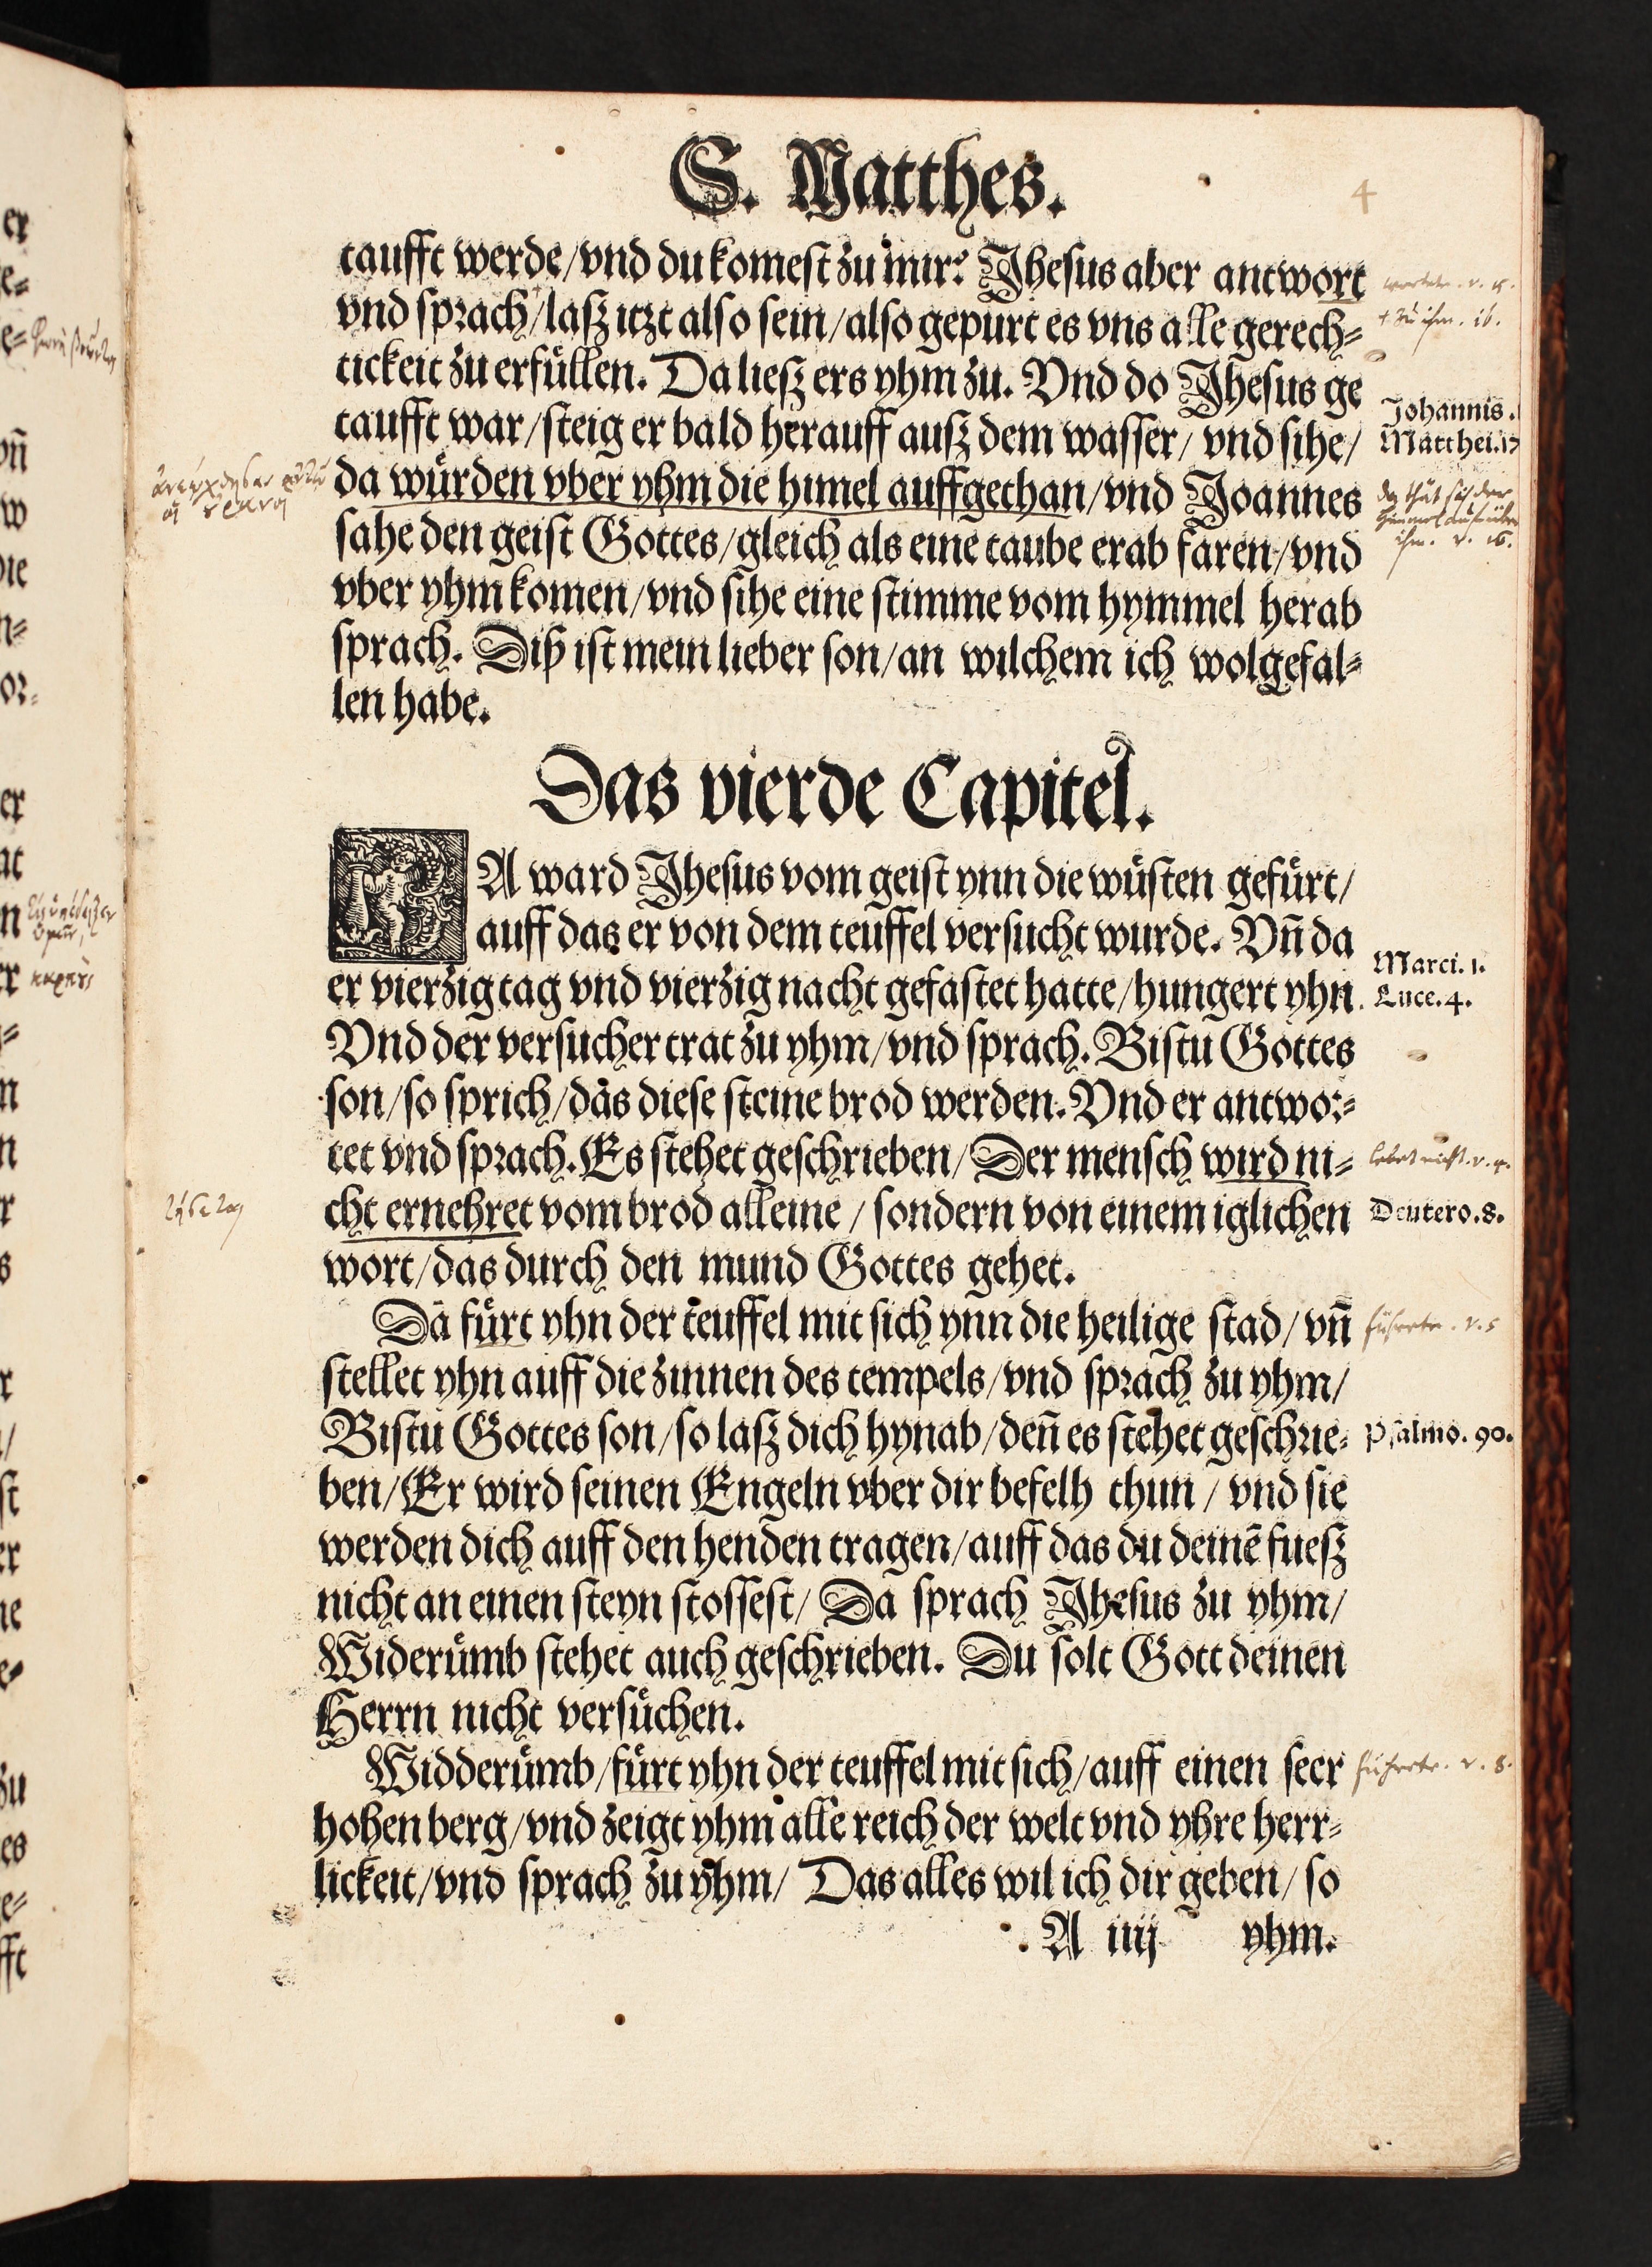 S. Matthes.
4
taufft werde/vnd du komest zu mir? Jhesus aber antwort
vnd sprach/lasz itzt also sein/also gepurt es vns alle gerech⸗
tickeit zu erfuͤllen. Da liesz ers yhm zu. Vnd do Jhesus ge
taufft war/steig er bald herauff ausz dem wasser/ vnd sihe/
Johannis.
Matthei.17
da wuͤrden vber yhm die himel auffgethan/vnd Joannes
sahe den geist Gottes/gleich als eine taube erab faren/vnd
vber yhm komen/vnd sihe eine stimme vom hymmel herab
sprach. Diß ist mein lieber son/an wilchem ich wolgefal⸗
len habe.
Das vierde Capitel.
DA ward Jhesus vom geist ynn die wuͤsten gefuͤrt/
auff das er von dem teuffel versucht wurde. Vn̄ da
Marci. 1.
er vierzig tag vnd vierzig nacht gefastet hatte/hungert yhn.
Luce. 4.
Vnd der versucher trat zu yhm/vnd sprach. Bistu Gottes
son/so sprich/das diese steine brod werden. Vnd er antwor⸗
tet vnd sprach. Es stehet geschrieben/Der mensch wird ni⸗
lebet nicht. v. 4.
cht ernehret vom brod alleine / sondern von einem iglichen
Deutero. 8.
wort/das durch den mund Gottes gehet.
Da fuͤrt yhn der teuffel mit sich ynn die heilige stad/ vn̄
führete. v. 5
stellet yhn auff die zinnen des tempels/vnd sprach zu yhm/
Bistu Gottes son/so lasz dich hynab/den̄ es stehet geschrie⸗
Psalmo. 90.
ben/Er wird seinen Engeln vber dir befelh thun / vnd sie
werden dich auff den henden tragen/auff das du deinē fuesz
nicht an einen steyn stossest/ Da sprach Jhesus zu yhm/
Widerumb stehet auch geschrieben. Du solt Gott deinen
Herrn nicht versuͤchen.
Widderumb/fuͤrt yhn der teuffel mit sich/auff einen seer
führete. v. 8.
hohen berg/vnd zeigt yhm alle reich der welt vnd yhre herr⸗
lickeit/vnd sprach zu yhm/ Das alles wil ich dir geben/ so
A iiij yhm.